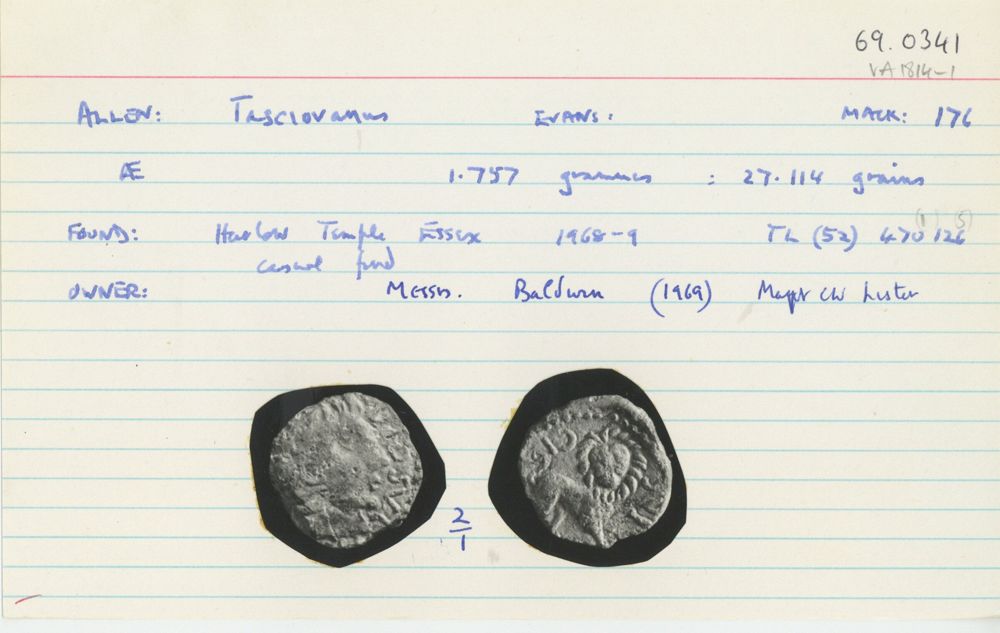 69.0341
VA 1814-1
ALLEN: Tasciovanus EVANS: MACK: 176
Æ 1.757 grammes : 27.114 grains
FOUND: Harlow Temple Essex 1968-9 TL (52) 470 126 (1) (5)
casual find
OWNER: Messrs. Baldwin (1969) CW Lister
2
1